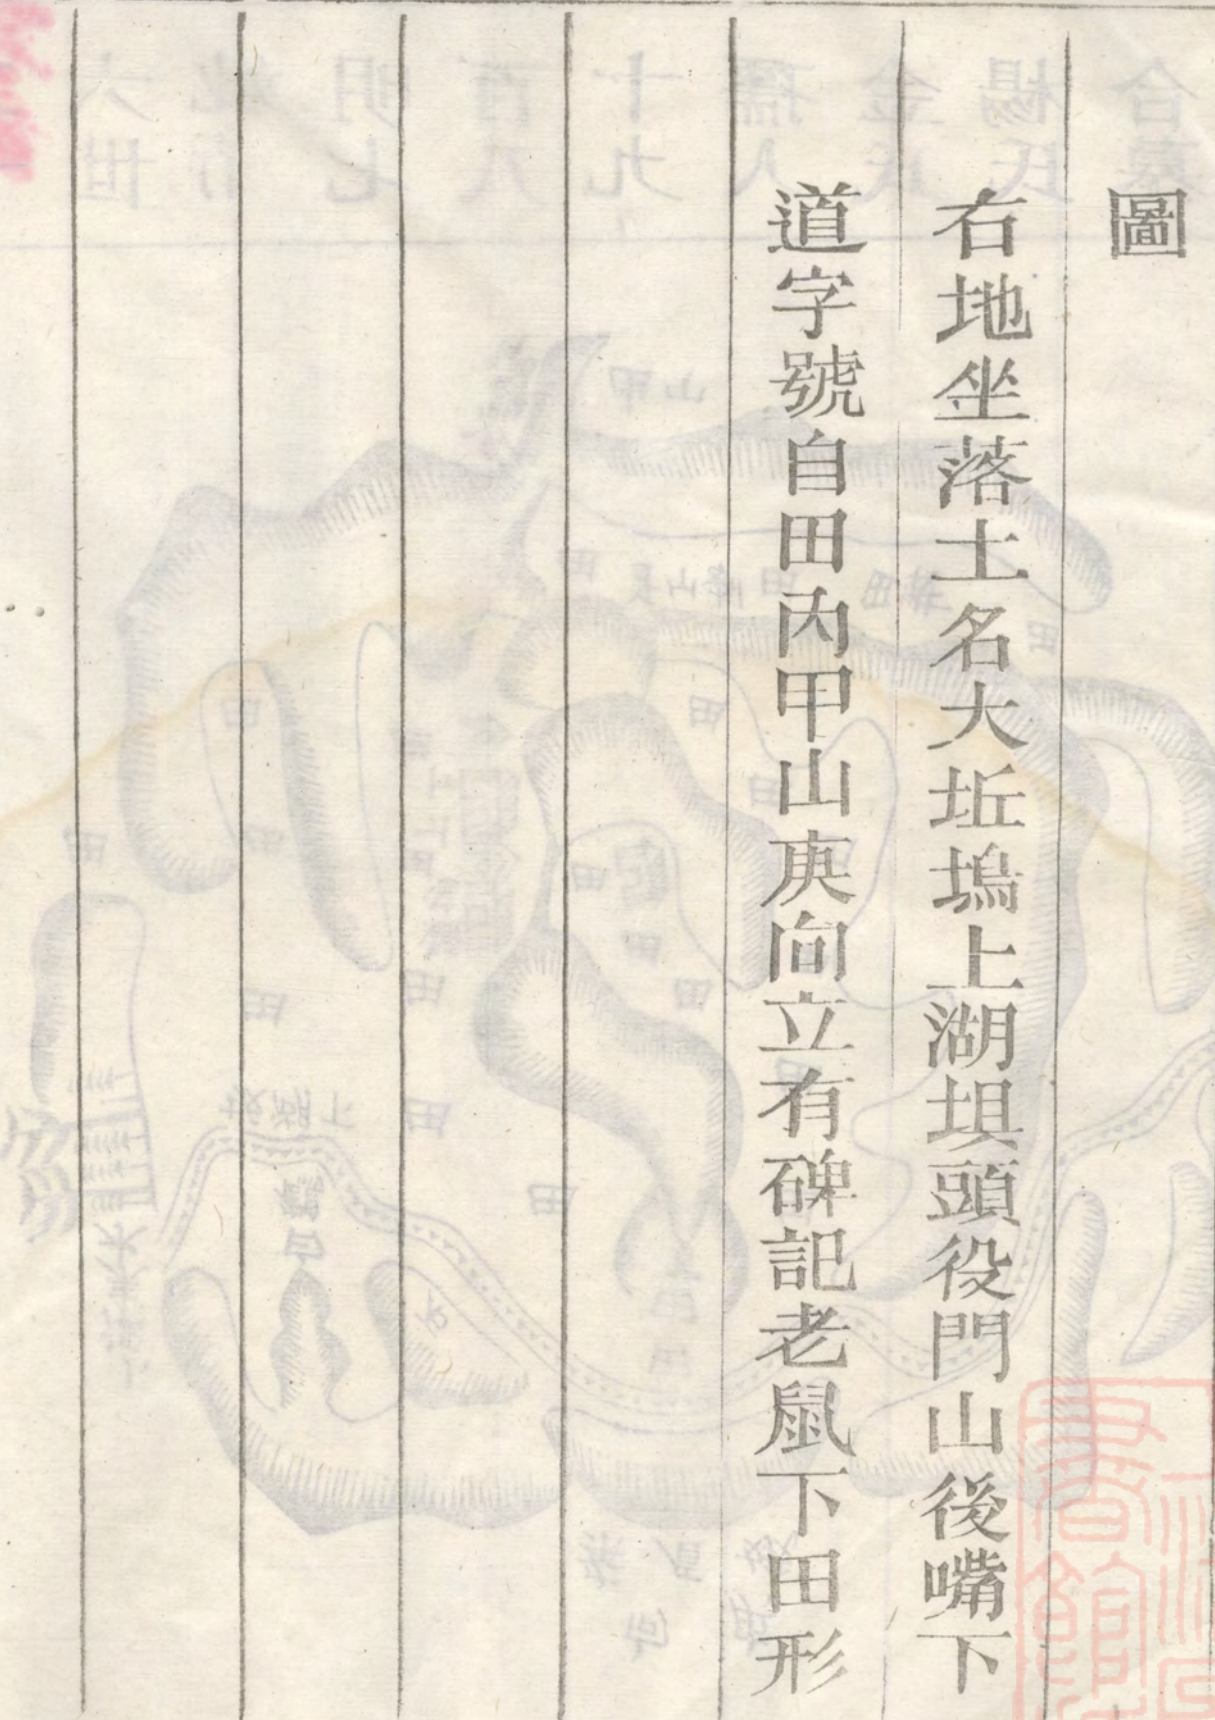 圖
右地坐落土名大坵塢上湖埧頭役門山後嘴下
道字號自田內甲山庚向立有碑記老鼠下田形